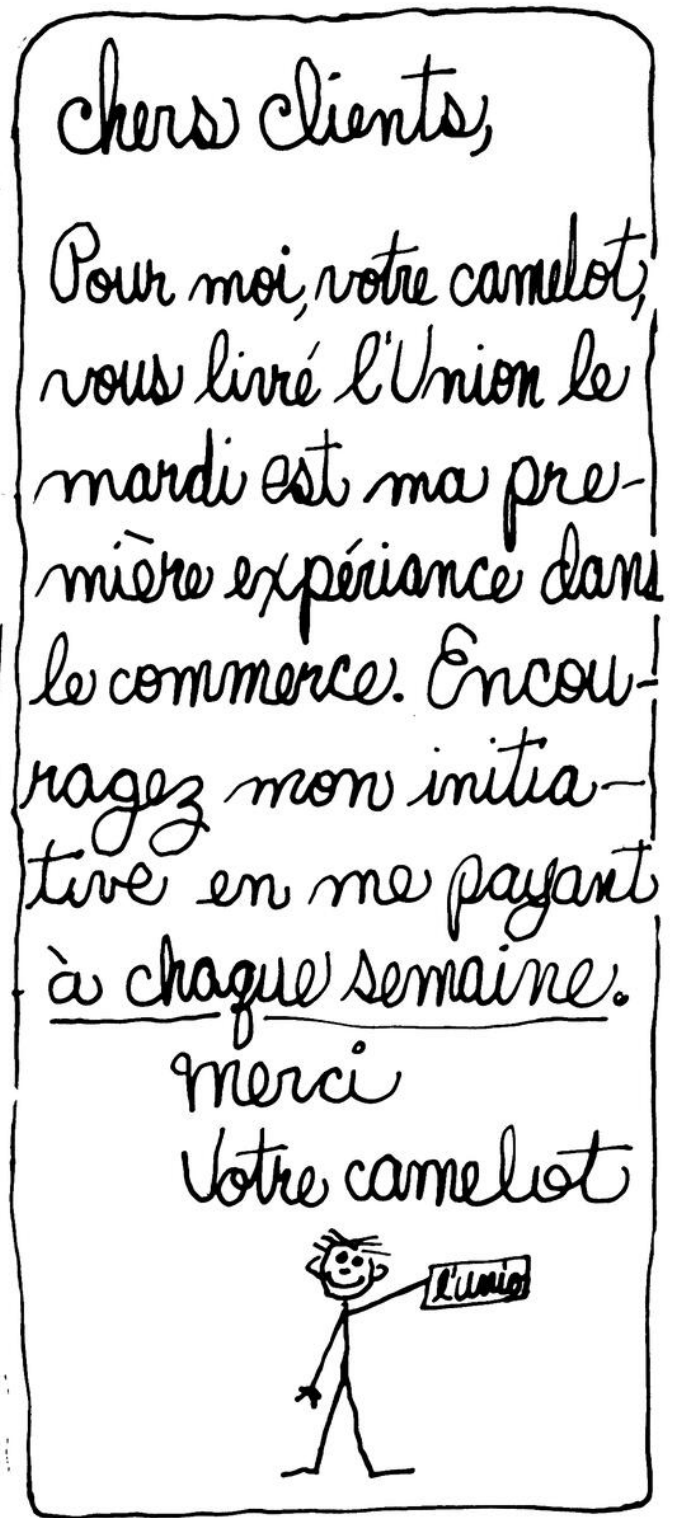 chers clients,
Pour moi, votre camelot,
vous livré l'Union le
mardi est ma pre-
mière expériance dans
le commerce. Encou-
ragez mon initia-
tive en me payant
à chaque semaine.
merci
Votre camelot
l'unio